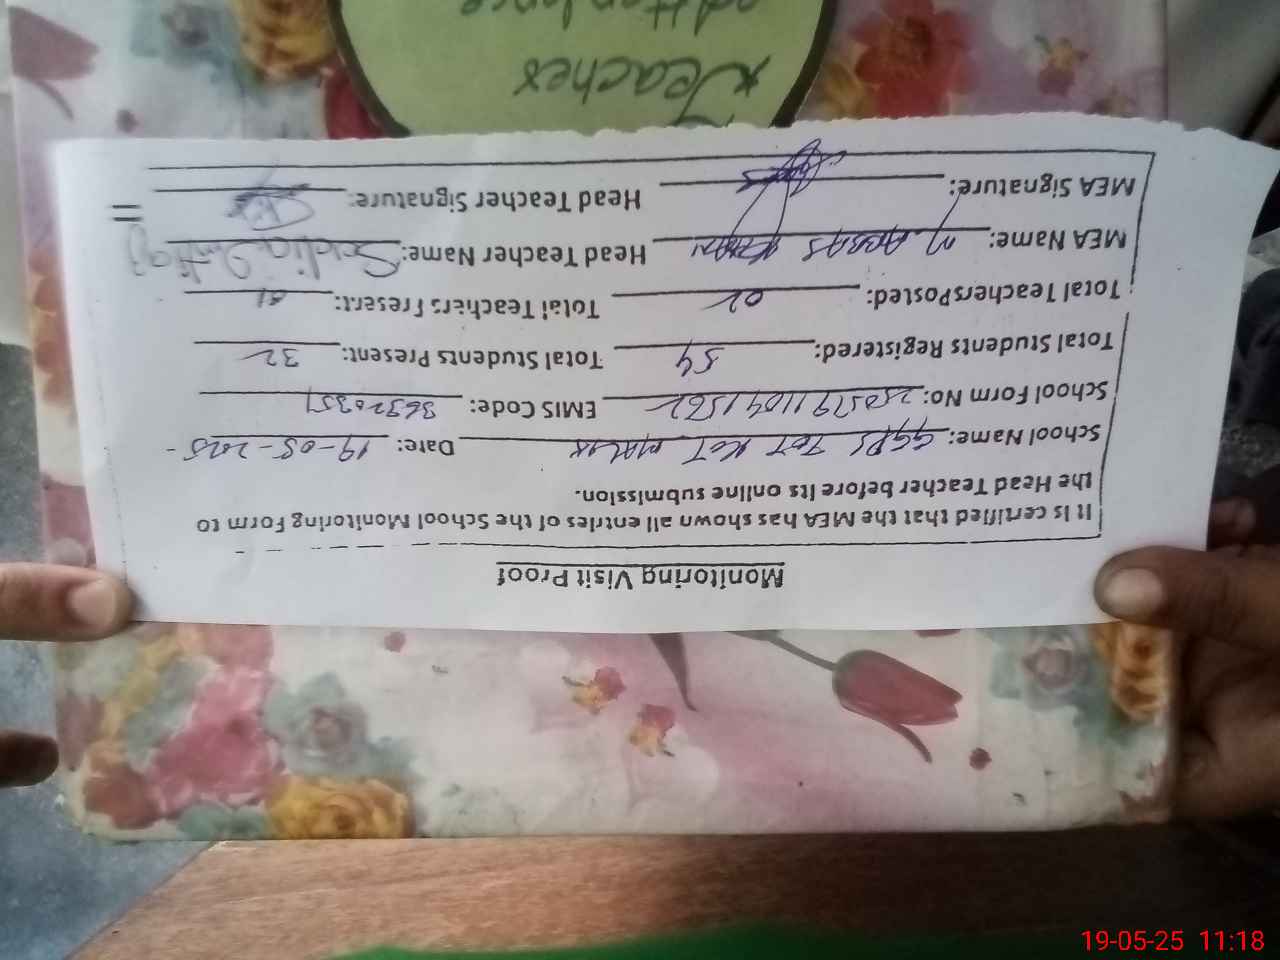 Monitoring Visit Proof
It is certified that the MEA has shown all entries of the School Monitoring Form to
the Head Teacher before its online submission.
School Name: GGPS TOT KOT MALAK Date: 19-05-2025
School Form No: EMIS Code: 36320351
Total Students Registered: 54 Total Students Present: 32
Total Teachers Posted: 02 Total Teachers Present: 01
MEA Name: M. ABBAS KHAN Head Teacher Name: Sadia Imtiaz
MEA Signature: Head Teacher Signature:
Teacher
19-05-25 11:18